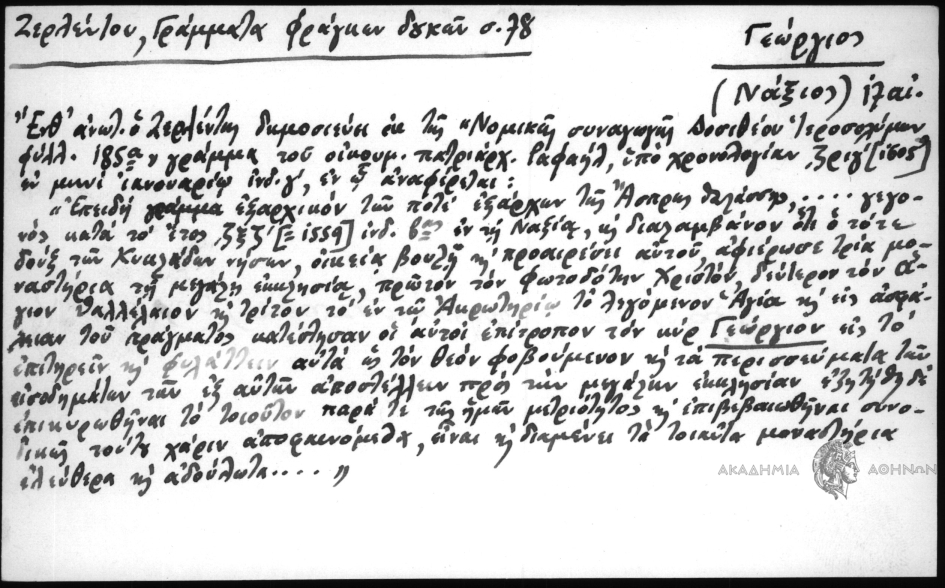 Ζερλέντου, Γράμματα φράγκων δουκῶν σ. 78
Γεώργιος
(Νάξιος) ιλαι.
"Ἔνθ' ἀνωτ. ὁ Ζερλέντης δημοσιεύει ἐκ τῆς "Νομικῆς συναγωγῆς Δοσιθέου Ἱεροσολύμων
φύλλ. 185α" γράμμα τοῦ οἰκουμ. πατριάρχ. Ραφαήλ, ὑπὸ χρονολογίαν ͵ζριγ' [1605]
ἐν μηνὶ ἰανουαρίῳ ἰνδ. γ', ἐν ᾧ ἀναφέρεται:
"Ἐπειδὴ γράμμα ἐξαρχικόν τῶν ποτὲ ἐξάρχων τῆς Ἄσπρης θαλάσσης, .... γεγο-
νὸς κατὰ τὸ ἔτος ͵ζξζ' [=1559] ἰνδ. βας ἐν τῇ Ναξίᾳ, κὴ διαλαμβάνον ὅτι ὁ τότε
δούξ τῶν Κυκλάδων νήσων, οἰκείᾳ βουλῇ κὴ προαιρέσει αὐτοῦ, ἀφιέρωσε τρία μο-
ναστήρια τῇ μεγάλῃ ἐκκλησίᾳ, πρῶτον τὸν φωτοδότην Χριστόν, δεύτερον τὸν ἅ-
γιον Θαλλέλαιον κὴ τρίτον τὸ ἐν τῷ Ἀκρωτηρίῳ τὸ λεγόμενον Ἁγία κὴ εἰς ἀσφά-
λειαν τοῦ πράγματος κατέστησαν οἱ αὐτοὶ ἐπίτροπον τὸν κὺρ Γεώργιον εἰς τὸ
ἐπιτηρεῖν κὴ φυλάττειν αὐτὰ ὡς τὸν θεὸν φοβούμενον κὴ τὰ περισσεύματα τῶν
εἰσοδημάτων τῶν ἐξ αὐτῶν ἀποστέλλειν πρὸς τὴν μεγάλην ἐκκλησίαν ἐζητήθη δὲ
ἐπικυρωθῆναι τὸ τοιοῦτον παρά τε τῆς ἡμῶν μετριότητος κὴ ἐπιβεβαιωθῆναι συνο-
δικῶς τούτου χάριν ἀποφαινόμεθα, εἶναι κὴ διαμένει τὰ τοιαῦτα μοναστήρια
ἐλεύθερα κὴ ἀδούλωτα.... "
ΑΚΑΔΗΜΙΑ ΑΘΗΝΩΝ